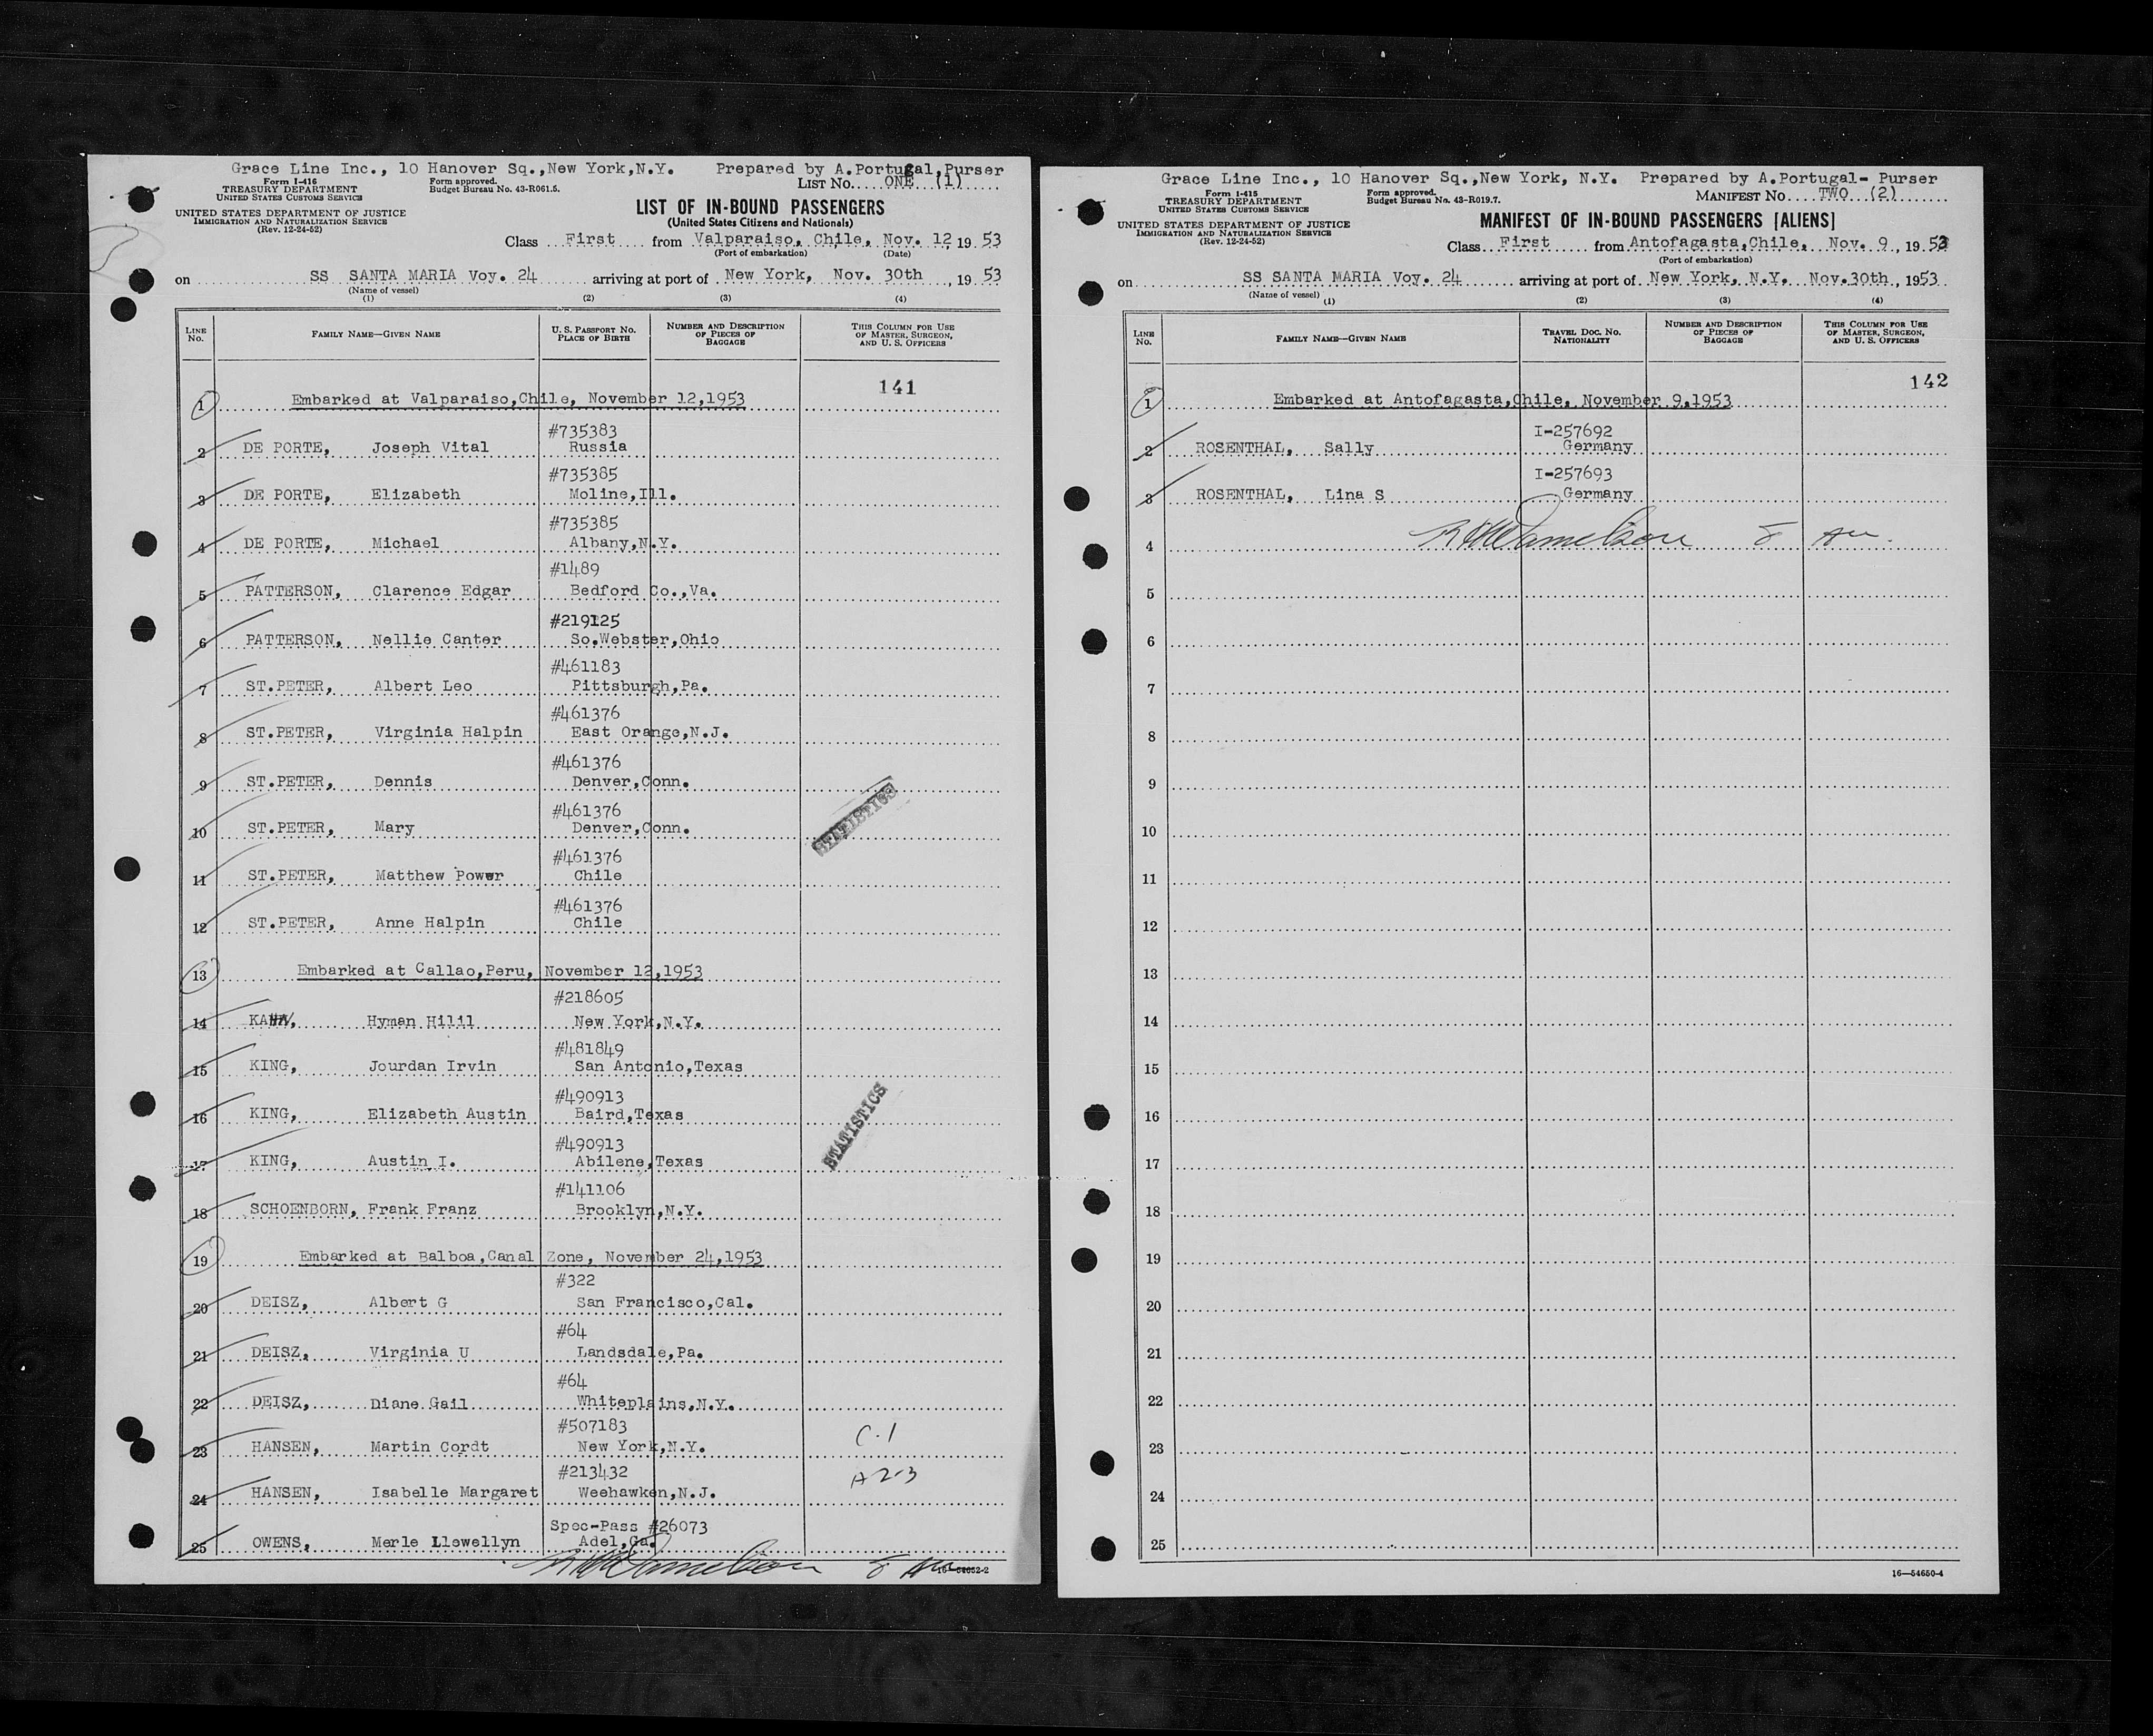 Grace Line Inc., 10 Hanover Sq.,New York,N.Y. Prepared by A.Portugal,Purser
Form I-416
TREASURY DEPARTMENT
UNITED STATES CUSTOMS SERVICE
Form approved.
Budget Bureau No. 43-R061.5.
LIST No. ONE (1)
UNITED STATES DEPARTMENT OF JUSTICE
IMMIGRATION AND NATURALIZATION SERVICE
(Rev. 12-24-52)
LIST OF IN-BOUND PASSENGERS
(United States Citizens and Nationals)
Class First from Valparaiso, Chile, Nov. 12, 19 53
(Port of embarkation) (Date)
on SS SANTA MARIA Voy. 24 arriving at port of New York, Nov. 30th, 19 53
(Name of vessel)
(1) (2) (3) (4)
LINE No. FAMILY NAME—GIVEN NAME U. S. PASSPORT NO. PLACE OF BIRTH NUMBER AND DESCRIPTION OF PIECES OF BAGGAGE THIS COLUMN FOR USE OF MASTER, SURGEON, AND U. S. OFFICERS
141
1 Embarked at Valparaiso,Chile, November 12,1953
#735383
2 DE PORTE, Joseph Vital Russia
#735385
3 DE PORTE, Elizabeth Moline,Ill.
#735385
4 DE PORTE, Michael Albany,N.Y.
#1489
5 PATTERSON, Clarence Edgar Bedford Co.,Va.
#219125
6 PATTERSON, Nellie Canter So.Webster,Ohio
#461183
7 ST.PETER, Albert Leo Pittsburgh,Pa.
#461376
8 ST.PETER, Virginia Halpin East Orange,N.J.
#461376
9 ST.PETER, Dennis Denver,Conn.
#461376
10 ST.PETER, Mary Denver,Conn.
STATISTICS
#461376
11 ST.PETER, Matthew Power Chile
#461376
12 ST.PETER, Anne Halpin Chile
13 Embarked at Callao,Peru, November 12,1953
#218605
14 KAHN, Hyman Hilil New York,N.Y.
#481849
15 KING, Jourdan Irvin San Antonio,Texas
#490913
16 KING, Elizabeth Austin Baird,Texas
STATISTICS
#490913
17 KING, Austin I. Abilene,Texas
#141106
18 SCHOENBORN, Frank Franz Brooklyn,N.Y.
19 Embarked at Balboa,Canal Zone, November 24,1953
#322
20 DEISZ, Albert G San Francisco,Cal.
#64
21 DEISZ, Virginia U Landsdale,Pa.
#64
22 DEISZ, Diane Gail Whiteplains,N.Y.
#507183
23 HANSEN, Martin Cordt New York,N.Y. C-1
#213432
24 HANSEN, Isabelle Margaret Weehawken,N.J. A 2-3
Spec-Pass #26073
25 OWENS, Merle Llewellyn Adel,Ga.
16—54652-2
Grace Line Inc., 10 Hanover Sq.,New York, N.Y. Prepared by A.Portugal- Purser
Form I-415
TREASURY DEPARTMENT
UNITED STATES CUSTOMS SERVICE
Form approved.
Budget Bureau No. 43-R019.7.
MANIFEST No. TWO (2)
UNITED STATES DEPARTMENT OF JUSTICE
IMMIGRATION AND NATURALIZATION SERVICE
(Rev. 12-24-52)
MANIFEST OF IN-BOUND PASSENGERS [ALIENS]
Class First from Antofagasta,Chile, Nov. 9, 1953
(Port of embarkation)
on SS SANTA MARIA Voy. 24 arriving at port of New York, N.Y. Nov.30th, 1953
(Name of vessel) (1) (2) (3) (4)
LINE No. FAMILY NAME—GIVEN NAME TRAVEL DOC. NO. NATIONALITY NUMBER AND DESCRIPTION OF PIECES OF BAGGAGE THIS COLUMN FOR USE OF MASTER, SURGEON, AND U. S. OFFICERS
142
1 Embarked at Antofagasta,Chile, November 9,1953
I-257692
2 ROSENTHAL, Sally Germany
I-257693
3 ROSENTHAL, Lina S Germany
4
5
6
7
8
9
10
11
12
13
14
15
16
17
18
19
20
21
22
23
24
25
16—54650-4